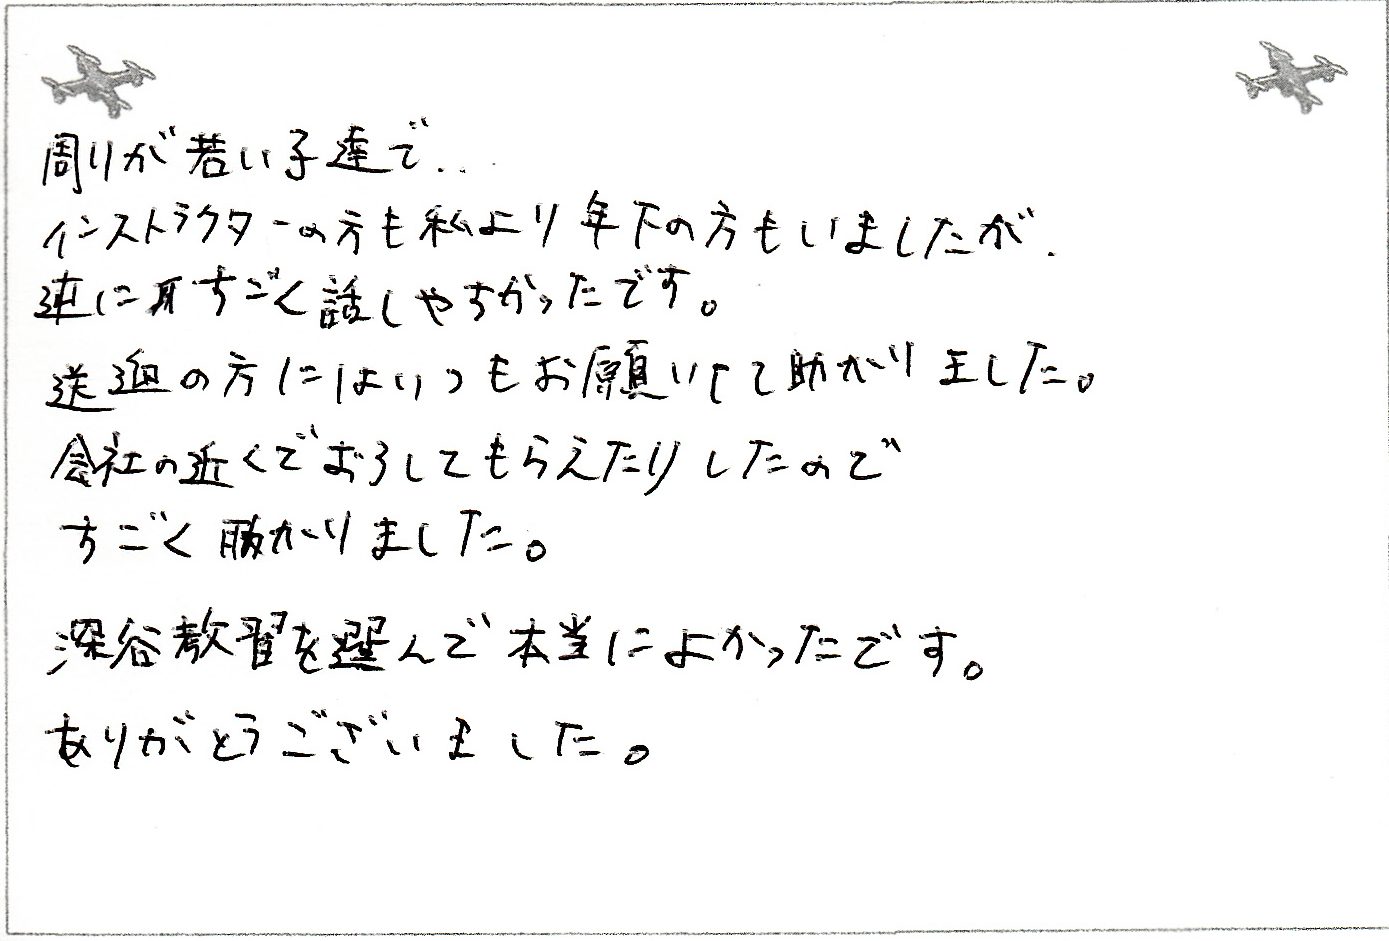 周りが若い子達で...
インストラクターの方も私より年下の方もいましたが、
逆にすごく話しやすかったです。
送迎の方にはいつもお願いして助かりました。
会社の近くでおろしてもらえたりしたので
すごく助かりました。
深谷教習を選んで本当によかったです。
ありがとうございました。